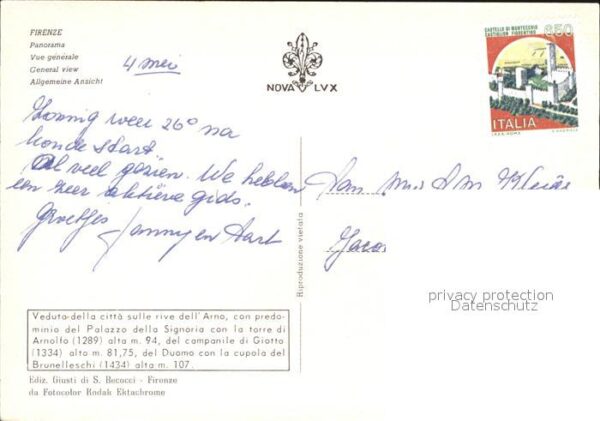 FIRENZE
Panorama
Vue generale
General view
Allgemeine Ansicht
4 mei
NOVA LVX
CASTELLO DI MONTECCHIO
CASTIGLION FIORENTINO
650
ITALIA
Zonnig weer 26° na
koude start
Al veel gezien. We hebben
een zeer aktieve gids.
Groetjes
Janny en Aart
Aan
Jacob
Riproduzione vietata
privacy protection
Datenschutz
Veduta della città sulle rive dell'Arno, con predo-
minio del Palazzo della Signoria con la torre di
Arnolfo (1289) alta m. 94, del campanile di Giotto
(1334) alta m. 81,75, del Duomo con la cupola del
Brunelleschi (1434) alta m. 107.
Ediz. Giusti di S. Becocci - Firenze
da Fotocolor Kodak Ektachrome